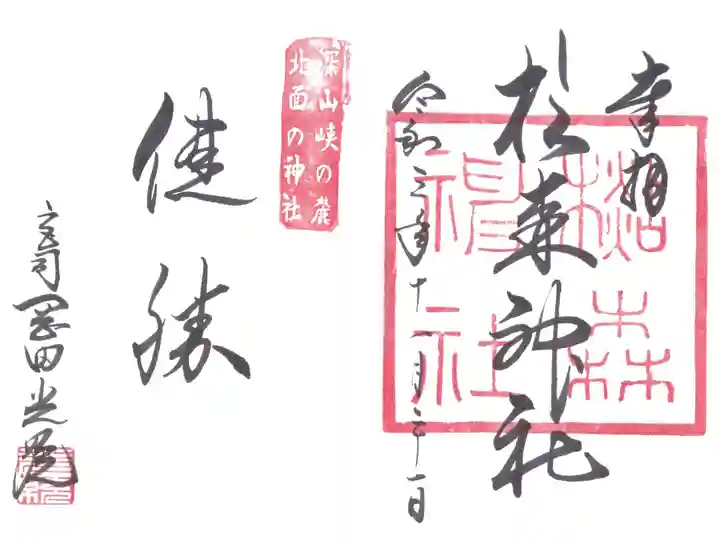 奉拝
松森神社
令和三年十一月二十一日
松森
神社
深山峡の麓
北面の神社
健勝
宮司岡田光